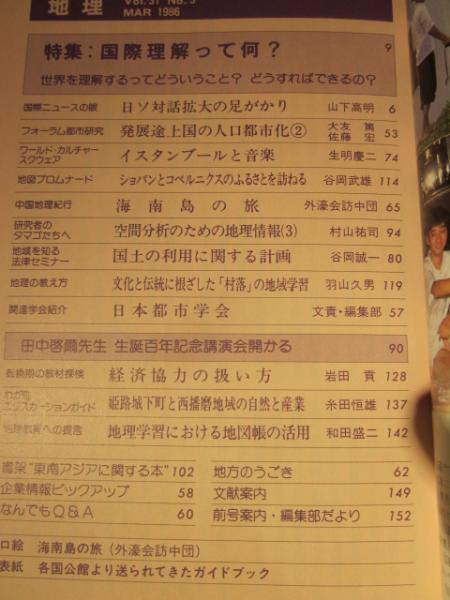 地理
Vol.31 No.3
MAR 1986
特集:国際理解って何? 9
世界を理解するってどういうこと? どうすればできるの?
国際ニュースの眼 日ソ対話拡大の足がかり 山下高明 6
フォーラム都市研究 発展途上国の人口都市化② 大友 篤 佐藤 宏 53
ワールド・カルチャースクウェア イスタンブールと音楽 生明慶二 74
地図プロムナード ショパンとコペルニクスのふるさとを訪ねる 谷岡武雄 114
中国地理紀行 海南島の旅 外濠会訪中団 65
研究者のタマゴたちへ 空間分析のための地理情報(3) 村山祐司 94
地域を知る法律セミナー 国土の利用に関する計画 谷岡誠一 80
地理の教え方 文化と伝統に根ざした「村落」の地域学習 羽山久男 119
関連学会紹介 日本都市学会 文責・編集部 57
田中啓爾先生 生誕百年記念講演会開かる 90
転換期の教材探検 経済協力の扱い方 岩田 貢 128
エクスカーションガイド 姫路城下町と西播磨地域の自然と産業 糸田恒雄 137
地理教育への提言 地理学習における地図帳の活用 和田盛二 142
書架"東南アジアに関する本" 102
地方のうごき 62
企業情報ピックアップ 58
文献案内 149
なんでもQ&A 60
前号案内・編集部だより 152
口絵 海南島の旅(外濠会訪中団)
表紙 各国公館より送られてきたガイドブック